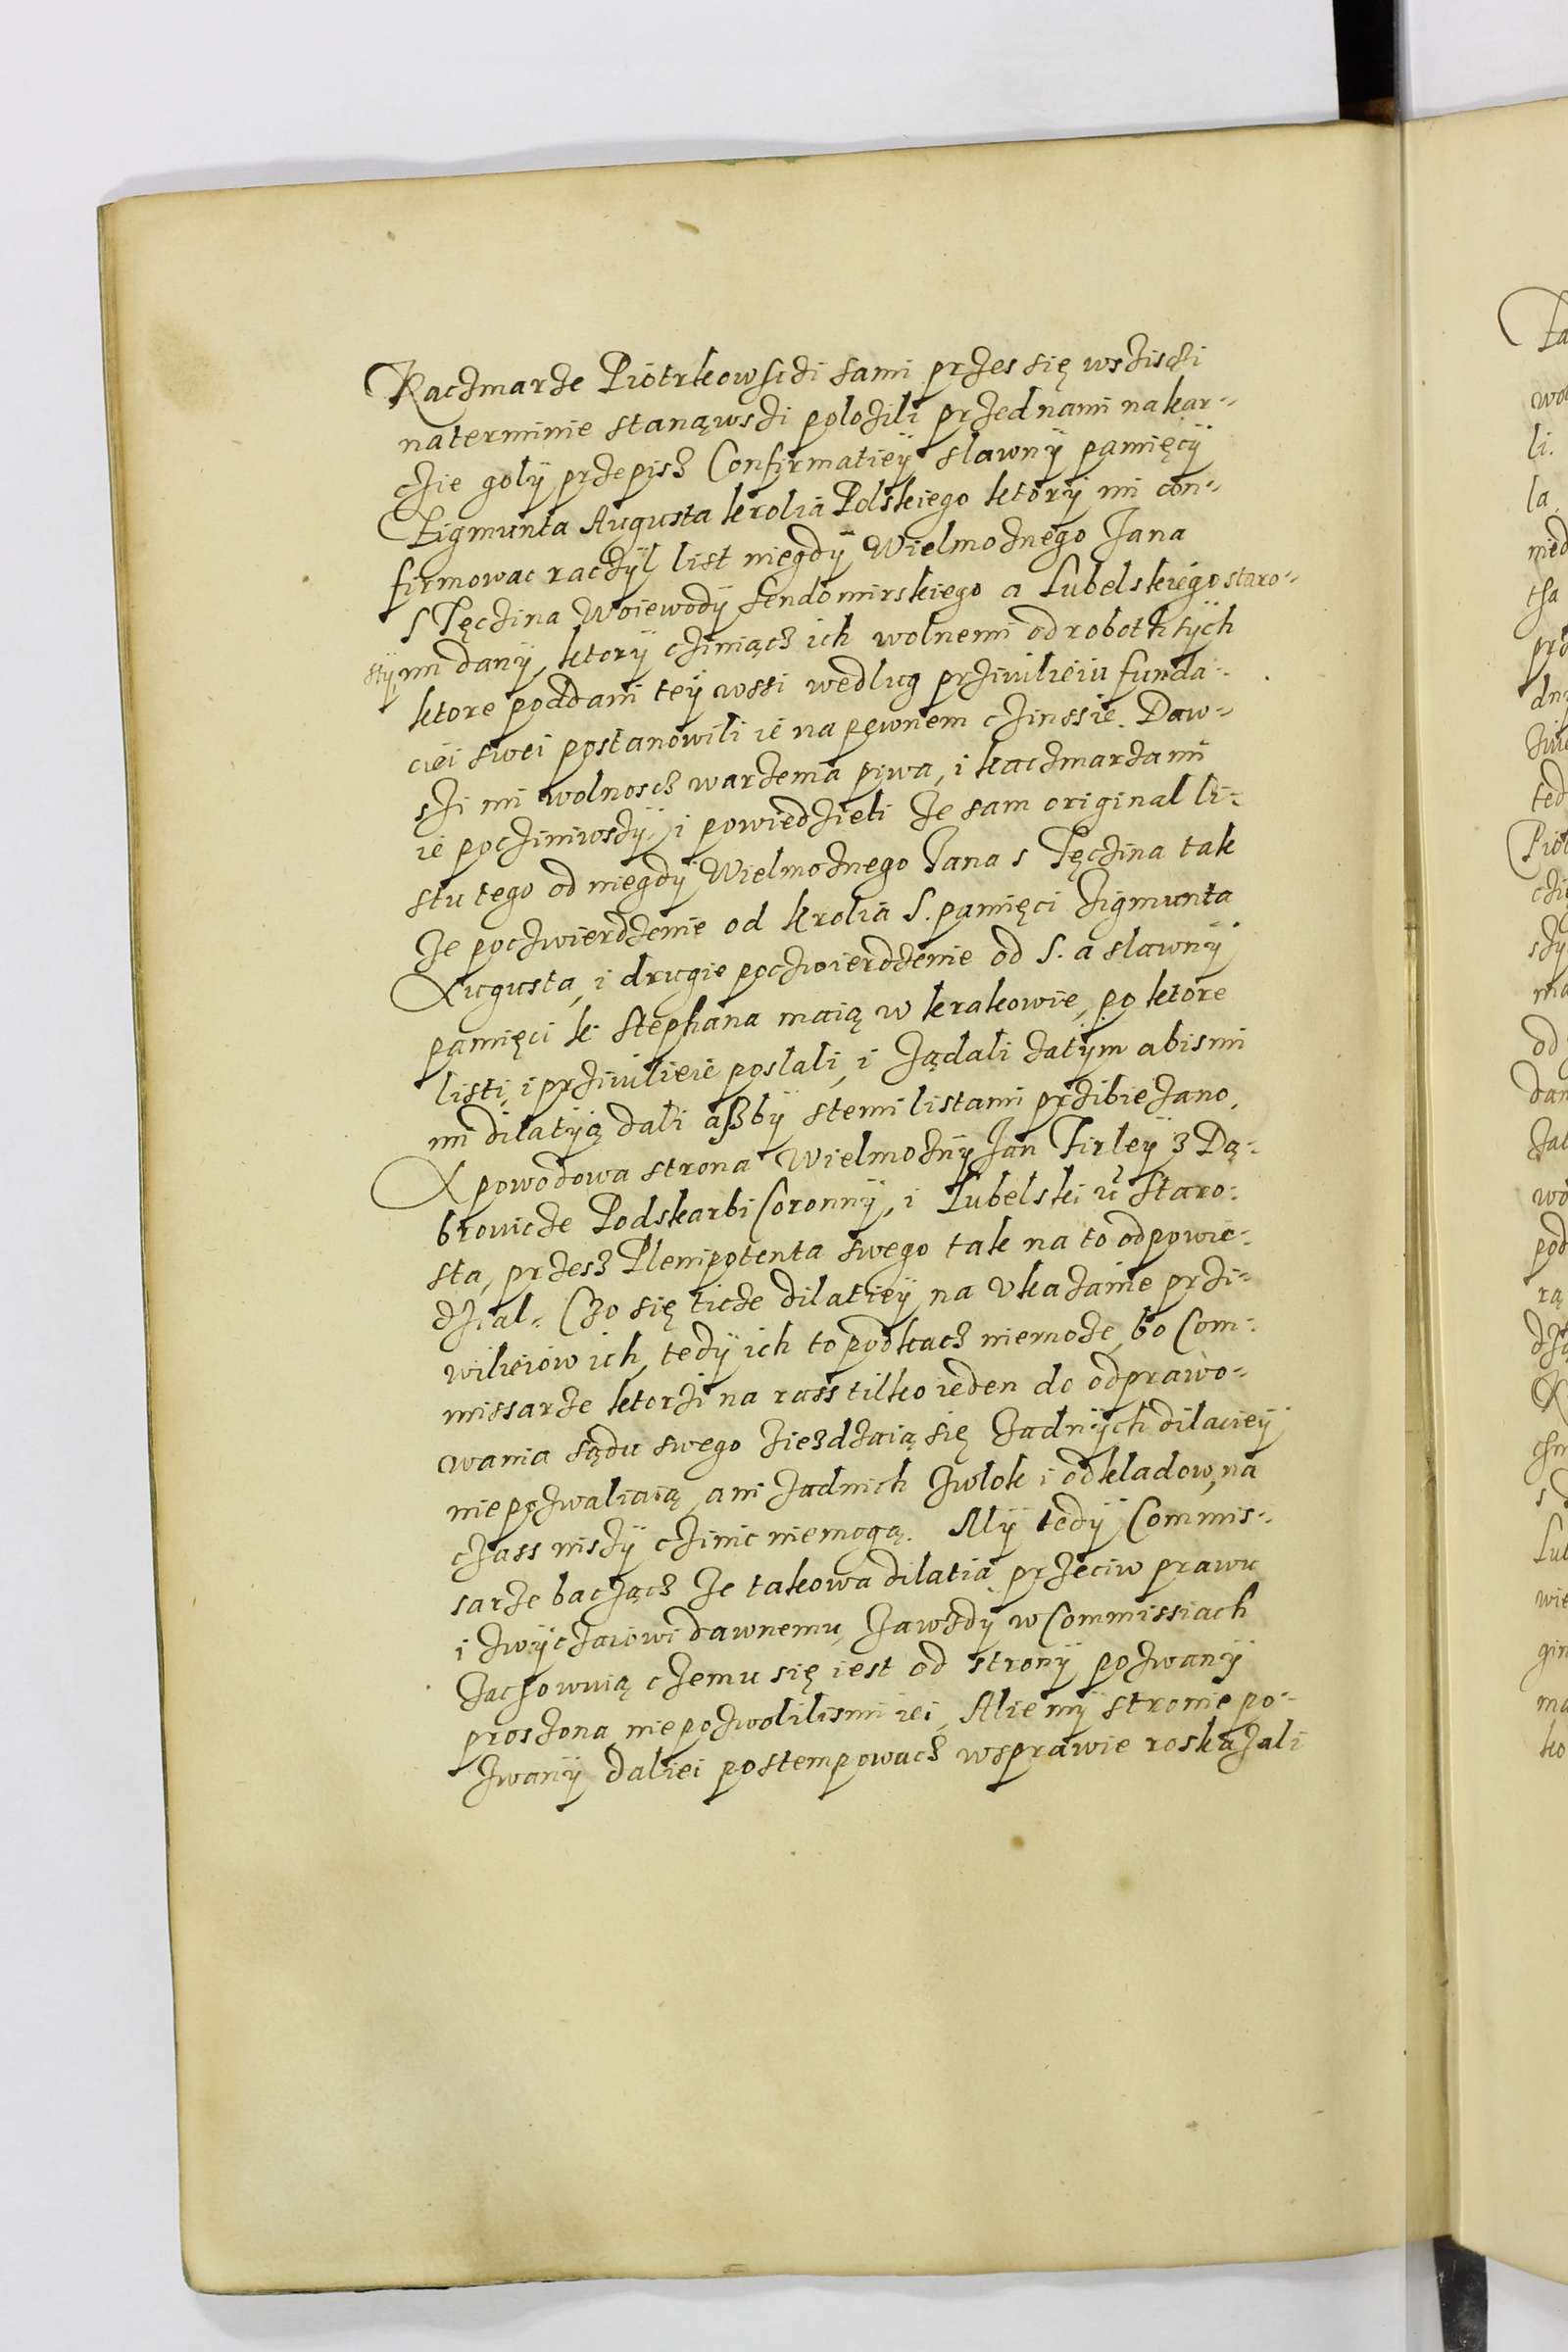 Kaczmarze Piotrkowsczi sami przes się wszisczi
na terminie stanąwszi położili przed nami na kar-
czie goły przepisz Confirmatiey slawny pamięcÿ
Zigmunta Augusta krolia Polskiego który mi con-
firmowac raczÿł list niegdÿ Wielmoznego Jana
s Tęczina Woiewodÿ Sendomirskiego a Lubelskiego staro-
stÿ mi danÿ, ktorÿ cziniącz ich wolnemi od roboth tÿch
ktore poddani teÿ wssi według prziuilieiu funda-
ciei swei postanowili ie na pewnem czinssie. Daw-
szi mi wolnoscz warzenia piwa, i kaczmarzami
ie pocziniwszÿ, i powiedzieli ze sam original li-
stu tego od niegdÿ Wielmoznego Jana s Tęczina tak
ze poczwierdzenie od krolia S. pamięci Zigmunta
Augusta, i drugie poczwierdzenie od S. a slawnÿ
pamięci k. Stephana maią w krakowie, po ktore
listi, i prziuilieie poslali, i ządali zatÿm abismi
mi dilatÿą dali aßbÿ s temi listami przibiezano.
A powodowa strona Wielmoznÿ Jan Firleÿ z Dą-
browicze Podskarbi Coronnÿ, i Lubelski u Staro-
sta, przesz Plenipotenta swego tak na to odpowie-
dzial. Czo się ticze dilatieÿ na vkazanie przi-
wilieiow ich, tedÿ ich to podkacz niemoze, bo Com-
missarze ktorzi na rass tilko ieden do odprawo-
wania sądu swego ziezdzaią się zadnÿch dilacieÿ
nie pozwaliaią, ani zadnich zwlok i odkladow, na
czass niszÿ czinic niemogą. Mÿ tedÿ Commis-
sarze baczącz ze takowa dilatia przeciw prawu
i zwÿczaiowi dawnemu, zawzdÿ w Commissiach
zachowuią czemu się iest od stronÿ pozwanÿ
proszona, nie pozwolilismi iei, Alie mÿ stronie po-
zwanÿ daliei postempowacz w sprawie roskazali